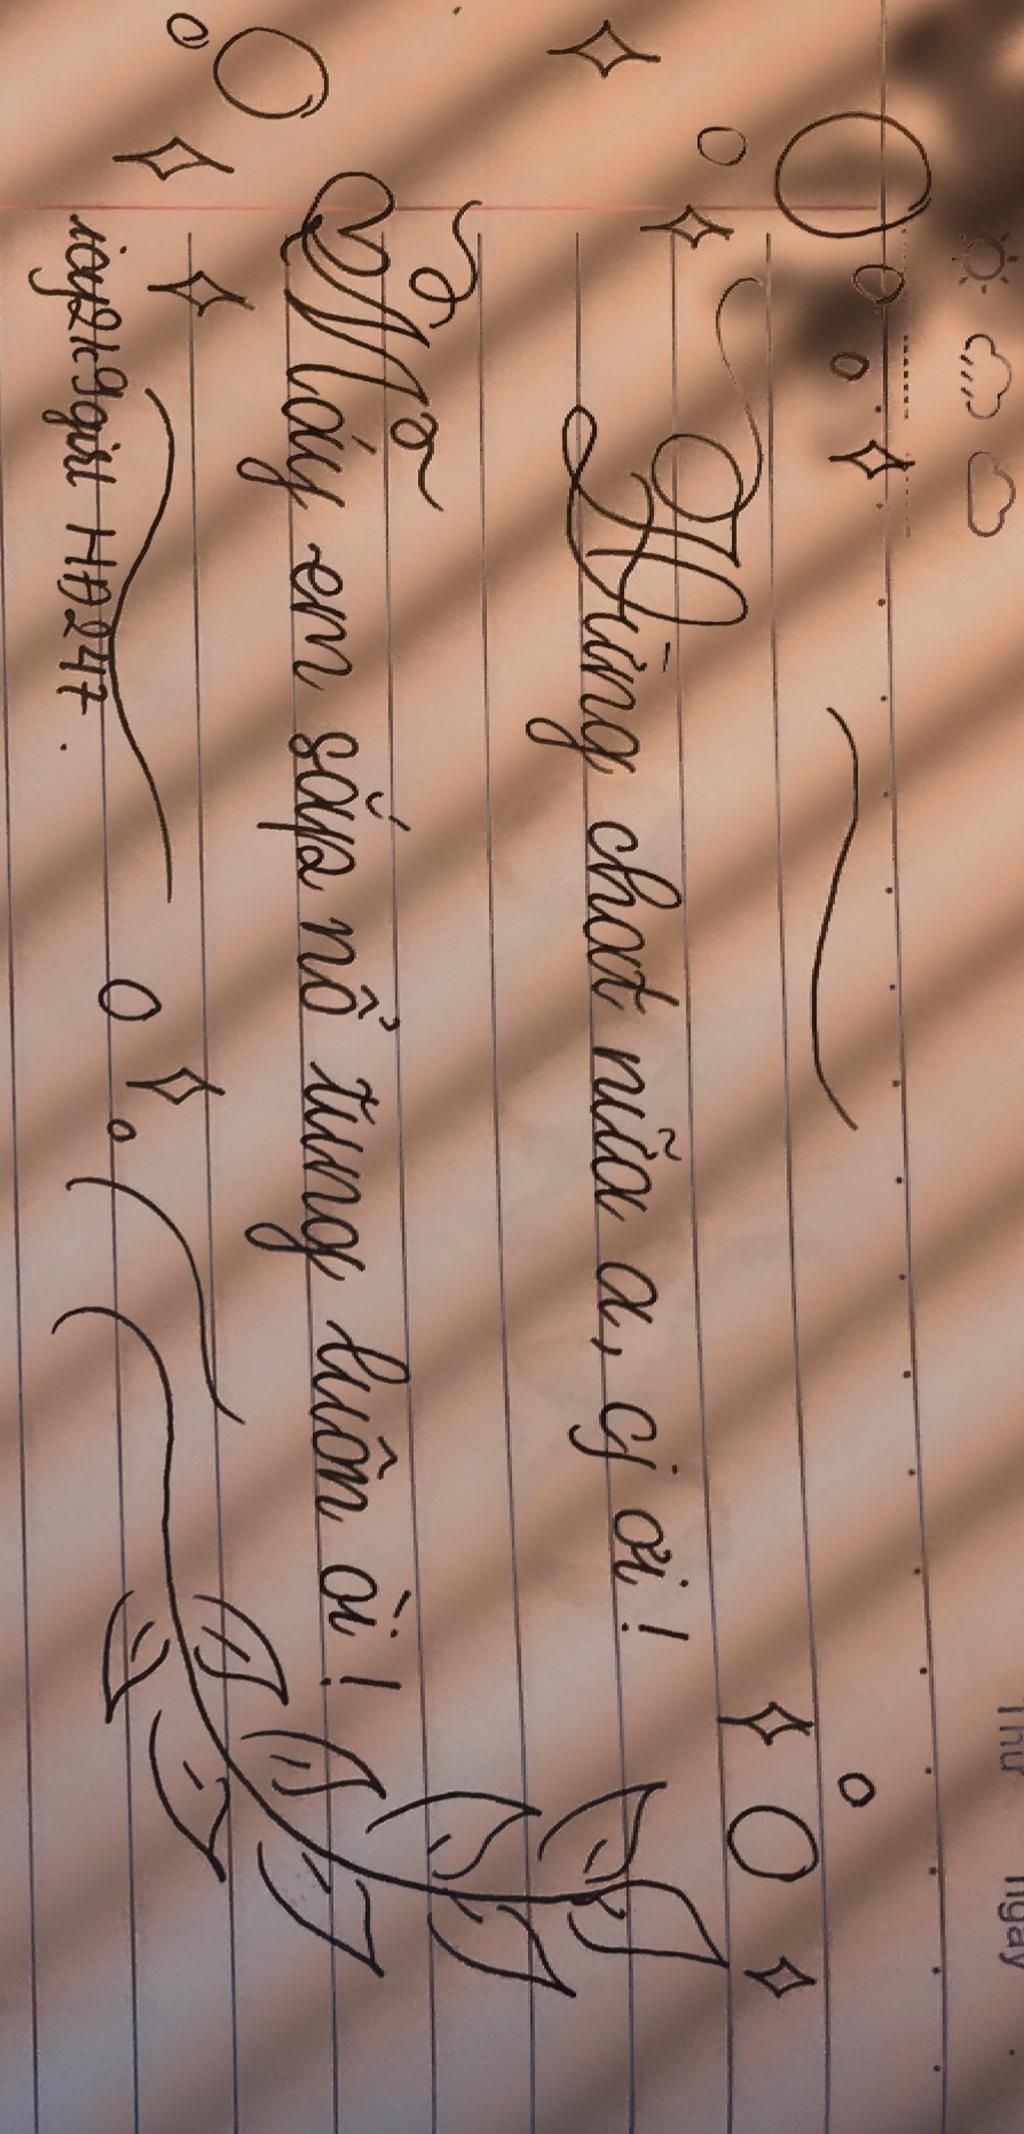 Thứ ngày
Đừng chat nữa a, cj ơi!
Máy em sắp nổ tung luôn òi!